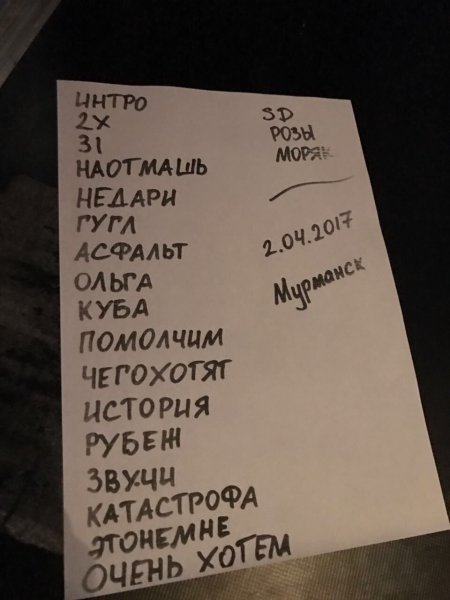 ИНТРО
2X
31
НАОТМАШЬ
НЕДАРИ
ГУГЛ
АСФАЛЬТ
ОЛЬГА
КУБА
ПОМОЛЧИМ
ЧЕГОХОТЯТ
ИСТОРИЯ
РУБЕЖ
ЗВУЧИ
КАТАСТРОФА
ЭТОНЕМНЕ
ОЧЕНЬ ХОТЕМ
SD
РОЗЫ
МОРЯК
2.04.2017
Мурманск